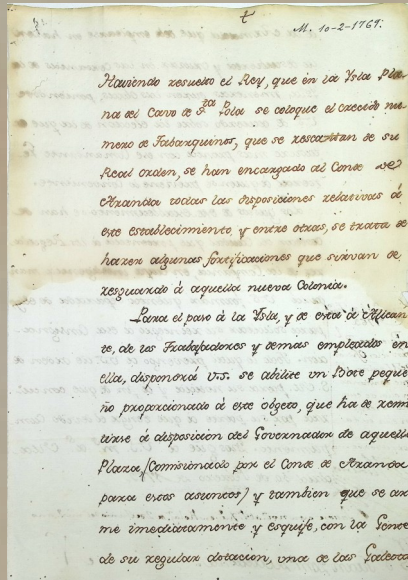 M. 10-2-1769.
Haviendo resuelto el Rey, que en la Ysla Pla
na del Cavo de Sta. Pola se coloque el crecido nu
mero de Tabarquinos, que se rescatan de su
Real orden, se han encargado al Conde de
Aranda todas las disposiciones relativas á
este establecimiento, y entre otras, se trata de
hazer algunas fortificaciones que sirvan de
resguardo á aquella nueva Colonia.
Para el paso á la Ysla, y de esta á Alican
te, de los Trabajadores y demas empleados en
ella, dispondrá V.S. se abilite un Bote peque
ño proporcionado á este obgeto, que ha de remi
tirse á disposicion del Governador de aquella
Plaza, (Comisionado por el Conde de Aranda
para estos asuntos) y tambien que se ar
me imediatamente y esquife, con la Gente
de su regular dotacion, una de las Galeota